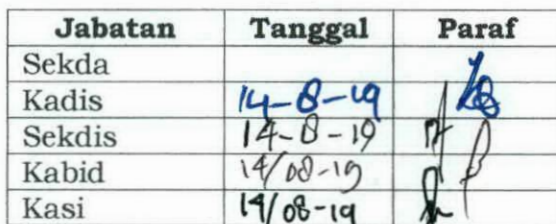 Jabatan Tanggal Paraf
Sekda
Kadis 14-8-19
Sekdis 14-8-19
Kabid 14/08-19
Kasi 14/08-19